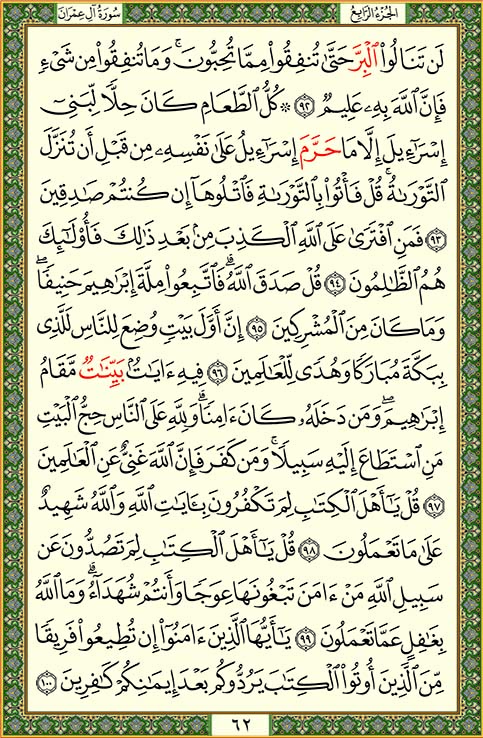 سُورَةُ آلِ عِمْرَانَ
الجُزْءُ الرَّابِعُ
لَن تَنَالُواْ ٱلْبِرَّ حَتَّىٰ تُنفِقُواْ مِمَّا تُحِبُّونَۚ وَمَا تُنفِقُواْ مِن شَىْءٍ
فَإِنَّ ٱللَّهَ بِهِۦ عَلِيمٌ ٩٢ ۞ كُلُّ ٱلطَّعَامِ كَانَ حِلًّا لِّبَنِىٓ
إِسْرَٰٓءِيلَ إِلَّا مَا حَرَّمَ إِسْرَٰٓءِيلُ عَلَىٰ نَفْسِهِۦ مِن قَبْلِ أَن تُنَزَّلَ
ٱلتَّوْرَىٰةُۗ قُلْ فَأْتُواْ بِٱلتَّوْرَىٰةِ فَٱتْلُوهَآ إِن كُنتُمْ صَٰدِقِينَ
٩٣ فَمَنِ ٱفْتَرَىٰ عَلَى ٱللَّهِ ٱلْكَذِبَ مِنۢ بَعْدِ ذَٰلِكَ فَأُوْلَٰٓئِكَ
هُمُ ٱلظَّٰلِمُونَ ٩٤ قُلْ صَدَقَ ٱللَّهُۗ فَٱتَّبِعُواْ مِلَّةَ إِبْرَٰهِيمَ حَنِيفًاۖ
وَمَا كَانَ مِنَ ٱلْمُشْرِكِينَ ٩٥ إِنَّ أَوَّلَ بَيْتٍ وُضِعَ لِلنَّاسِ لَلَّذِى
بِبَكَّةَ مُبَارَكًا وَهُدًى لِّلْعَٰلَمِينَ ٩٦ فِيهِ ءَايَٰتٌۢ بَيِّنَٰتٌ مَّقَامُ
إِبْرَٰهِيمَۖ وَمَن دَخَلَهُۥ كَانَ ءَامِنًاۗ وَلِلَّهِ عَلَى ٱلنَّاسِ حِجُّ ٱلْبَيْتِ
مَنِ ٱسْتَطَاعَ إِلَيْهِ سَبِيلًاۚ وَمَن كَفَرَ فَإِنَّ ٱللَّهَ غَنِىٌّ عَنِ ٱلْعَٰلَمِينَ
٩٧ قُلْ يَٰٓأَهْلَ ٱلْكِتَٰبِ لِمَ تَكْفُرُونَ بِـَٔايَٰتِ ٱللَّهِ وَٱللَّهُ شَهِيدٌ
عَلَىٰ مَا تَعْمَلُونَ ٩٨ قُلْ يَٰٓأَهْلَ ٱلْكِتَٰبِ لِمَ تَصُدُّونَ عَن
سَبِيلِ ٱللَّهِ مَنْ ءَامَنَ تَبْغُونَهَا عِوَجًا وَأَنتُمْ شُهَدَآءُۗ وَمَا ٱللَّهُ
بِغَٰفِلٍ عَمَّا تَعْمَلُونَ ٩٩ يَٰٓأَيُّهَا ٱلَّذِينَ ءَامَنُوٓاْ إِن تُطِيعُواْ فَرِيقًا
مِّنَ ٱلَّذِينَ أُوتُواْ ٱلْكِتَٰبَ يَرُدُّوكُم بَعْدَ إِيمَٰنِكُمْ كَٰفِرِينَ ١٠٠
٦٢